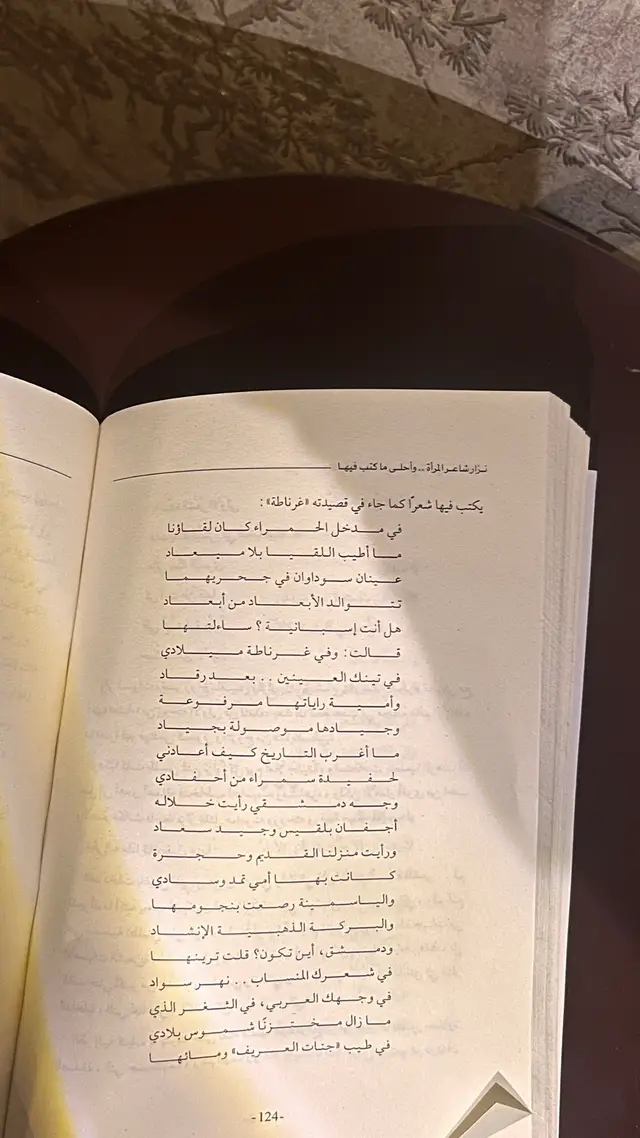 نزار شاعر المرأة .. وأحلى ما كتب فيها
يكتب فيها شعرًا كما جاء في قصيدته «غرناطة»:
في مدخل الحمراء كان لقاؤنا
ما أطيب اللقيا بلا ميعاد
عينان سوداوان في جحريهما
تتوالد الأبعاد من أبعاد
هل أنت إسبانية؟ ساءلتها
قالت: وفي غرناطة ميلادي
في تينك العينين .. بعد رقاد
وأمية راياتها مرفوعة
وجيادها موصولة بجياد
ما أغرب التاريخ كيف أعادني
لحفيدة سمراء من أحفادي
وجه دمشقي رأيت خلاله
أجفان بلقيس وجيد سعاد
ورأيت منزلنا القديم وحجرة
كانت بها أمي تمد وسادي
والياسمينة رصعت بنجومها
والبركة الذهبية الإنشاد
ودمشق، أين تكون؟ قلت ترينها
في شعرك المنساب .. نهر سواد
في وجهك العربي، في الثغر الذي
ما زال مختزنًا شموس بلادي
في طيب «جنات العريف» ومائها
-124-